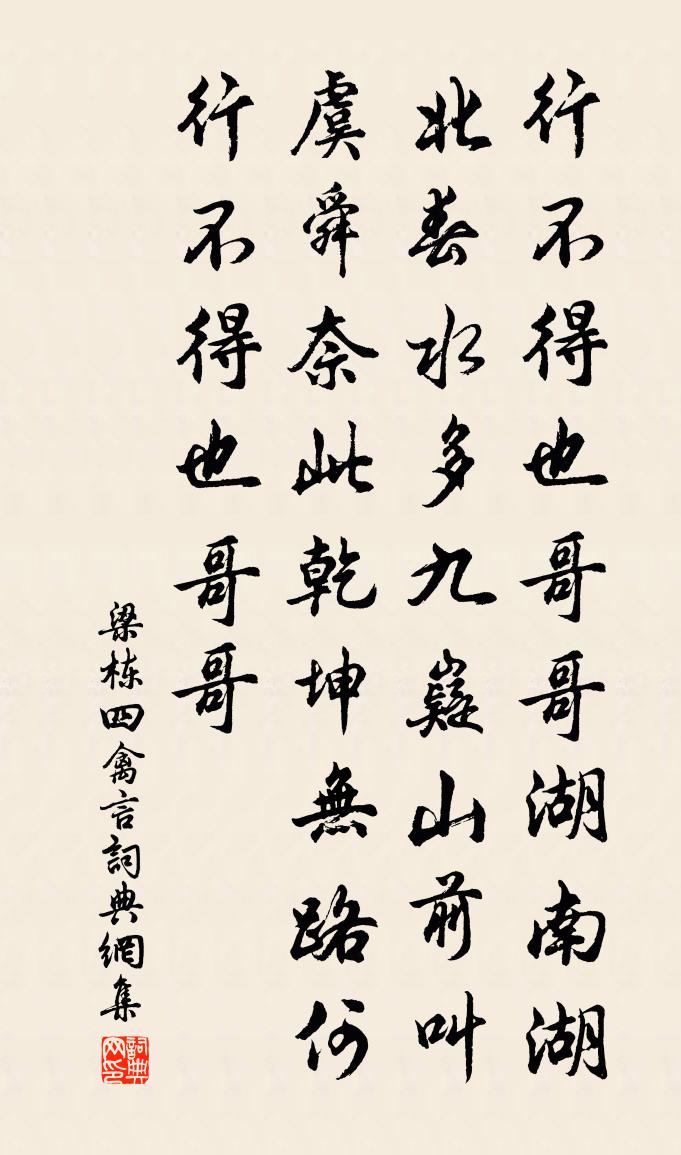 行不得也哥哥湖南湖
北春水多九嶷山前叫
虞舜奈此乾坤無路何
行不得也哥哥
梁栋四禽言詞典網集
詞典网印